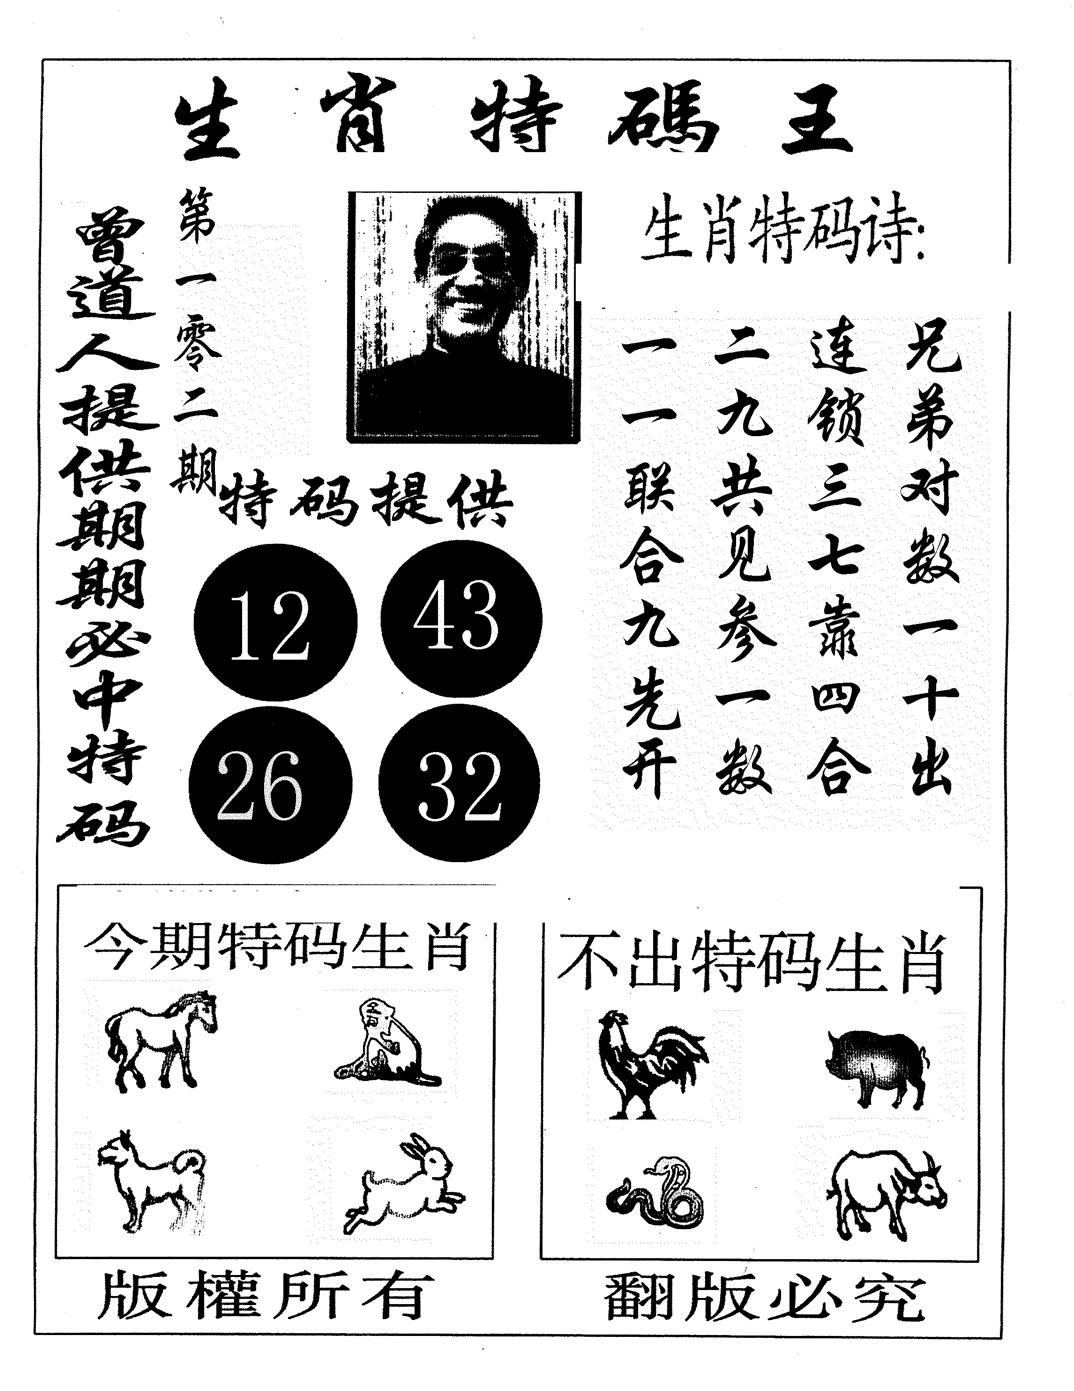 生肖特碼王
曾道人提供期期必中特码
第一零二期
特码提供
12 43
26 32
生肖特码诗:
兄弟对数一十出
连锁三七靠四合
二九共见参一数
一一联合九先开
今期特码生肖
不出特码生肖
版權所有
翻版必究